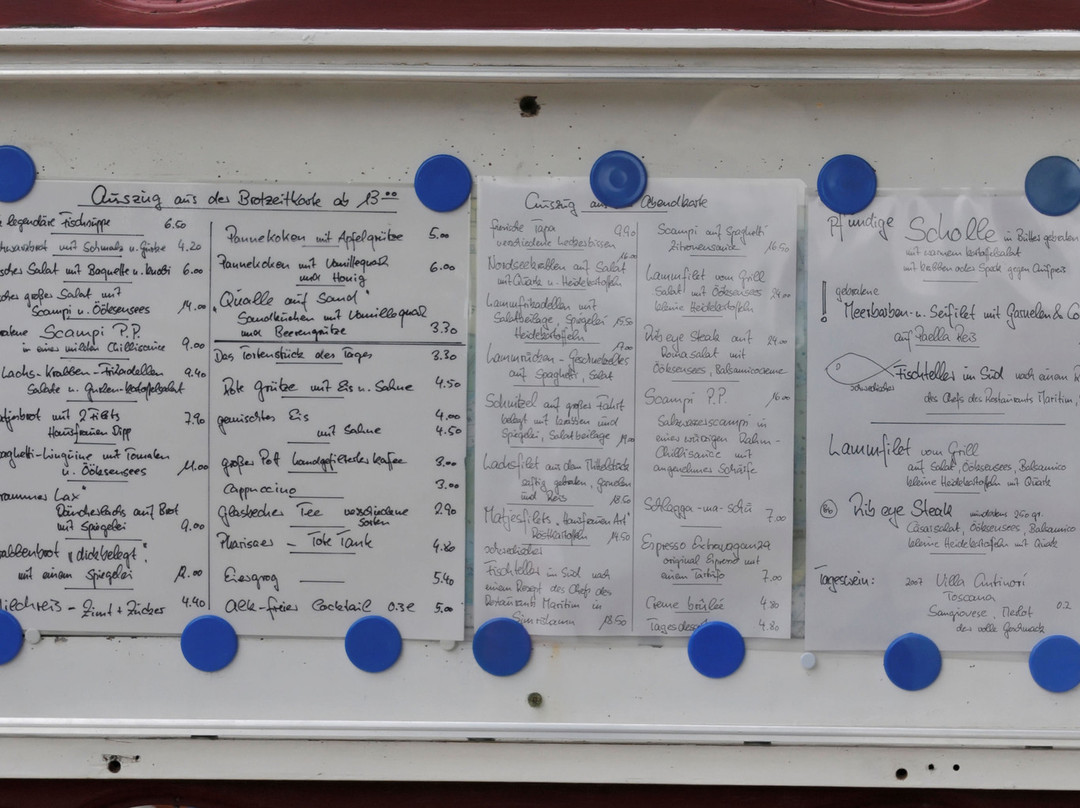 Auszug aus der Brotzeitkarte ab 13.00
legendäre Fischsuppe 6.50
mit Schmalz u. Grütze 4.20
Salat mit Baguette u. Knobi 6.00
großer Salat mit
Scampi u. Öökensees 14.00
Scampi P.P.
in einer milden Chillisauce 9.00
Lachs-Krabben-Frikadellen 9.40
Salate u. Gurken-Kartoffelsalat
mit 2 Filets 7.90
Hausfrauen Dipp
Spaghetti-Linguine mit Tomaten
u. Öökensees 11.00
Lax"
auf Brot
mit Spiegelei 9.00
"dickbelegt"
mit einem Spiegelei 12.00
Milchreis - Zimt + Zucker 4.40
Pannekoken mit Apfelgrütze 5.00
Pannekoken mit Vanillequark 6.00
und Honig
"Qualle auf Sand"
Sandkuchen mit Vanillequark
und Beerengrütze 3.30
Das Tortenstück des Tages 3.30
Rote Grütze mit Eis u. Sahne 4.50
gemischtes Eis 4.00
mit Sahne 4.50
großer Pot Landgefilterter Kaffee 3.00
Cappuccino 3.00
Glasbecher Tee verschiedene 2.90
Sorten
Pharisäer - Tote Tank 4.80
Eiergrog 5.40
Alk-freier Cocktail 0.3l 5.00
Auszug aus Abendkarte
friesische Tapa 9.90
verschiedene Leckerbissen
Nordseekrabben auf Salat 16.00
mit Quark u. Heidekartoffeln
Lammfrikadellen mit
Salatbeilage, Spiegelei 15.50
Heidekartoffeln
Lammrücken-Geschnetzeltes 17.00
auf Spaghetti, Salat
Schnitzel auf großer Fahrt
belegt mit Krabben und
Spiegelei, Salatbeilage
Lachsfilet aus dem Mittelstück
saftig gebraten, Garnelen
und Reis 18.50
Matjesfilets "Hausfrauen Art"
Röstkartoffeln 14.50
schwedischer
Fischteller im Süd nach
einem Rezept des Chefs des
Restaurants Maritim in
Simrishamn 18.50
Scampi auf Spaghetti
Zitronensauce 16.50
Lammfilet vom Grill
Salat mit Öökensees 24.00
kleine Heidekartoffeln
Rib eye Steak auf 24.00
Romasalat mit
Öökensees, Balsamicocreme
Scampi P.P. 16.00
Salzwasserscampi in
einer würzigen Rahm-
Chillisauce mit
angenehmer Schärfe
Schlagga-ma-Schü 7.00
Espresso Extravaganza
original Espresso mit
einem Tartufo 7.00
Creme brûlée 4.80
4.80
Pfundige Scholle in Butter gebraten
mit warmem Kartoffelsalat
mit Krabben oder Speck gegen Aufpreis
! gebratene
Meerbarben- u. Seifilet mit Garnelen & Co
auf Paella Reis
schwedischer Fischteller im Süd nach einem
des Chefs des Restaurants Maritim,
Lammfilet vom Grill
auf Salat, Öökensees, Balsamico
kleine Heidekartoffeln mit Quark
Rib eye Steak mindestens 250 gr.
Cäsarsalat, Öökensees, Balsamico
kleine Heidekartoffeln mit Quark
Tageswein: 2007 Villa Antinori
Toscana
Sangiovese, Merlot 0.2
der volle Geschmack